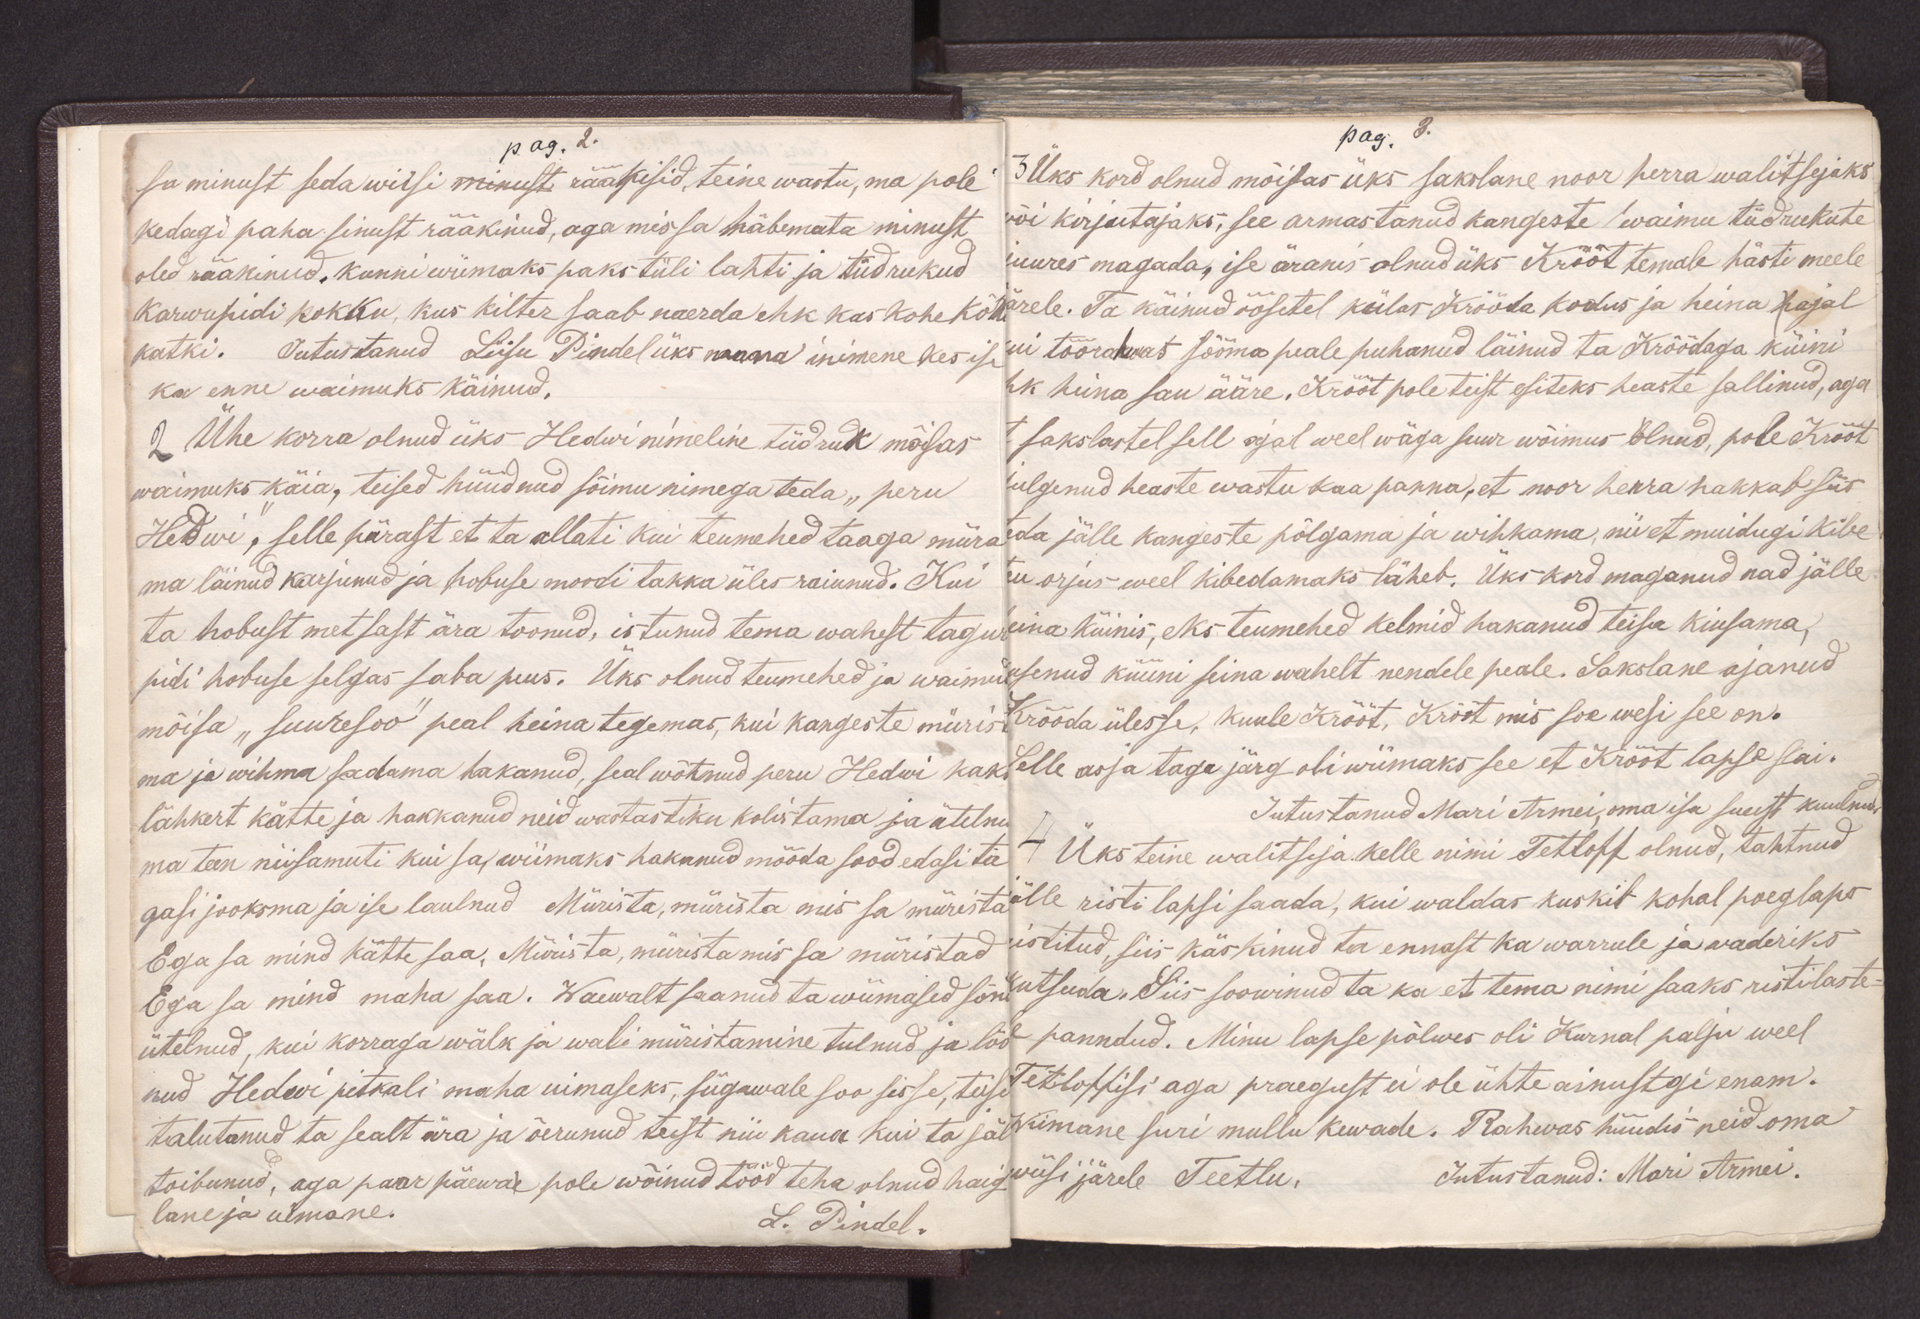 pag. 2.
sa minust seda wiisi minust rääkisid, teine wastu, ma pole
kedagi paha sinust rääkinud, aga mis sa häbemata minust
oled rääkinud. Kunni wiimaks paks tüli lahti ja tüdrukud
karwupidi kokku, kus kilter saab naerda ehk kas kohe kõht
katki. Jutustanud Liisu Pindel üks wana inimene kes ise
ka enne waimuks käinud.
2 Ühe korra olnud üks Hedwi nimeline tüdruk mõisas
waimuks käia, teised hüüdnud sõimu nimega teda „peru
Hedwi", selle pärast et ta allati kui teumehed taaga müra
ma läinud karjunud ja hobuse moodi takka üles raiunud. Kui
ta hobust metsast ära toonud, istunud tema wahest tagur
pidi hobuse selgas saba peus. Üks olnud teumehed ja waimud
mõisa „suuresoo" peal heina tegemas, kui kangeste mürist
ma ja wihma sadama hakanud, seal wõtnud peru Hedwi kaks
lähkert kätte ja hakkanud neid wastastiku kolistama ja ütelnu
ma teen niisamuti kui sa, wiimaks hakanud mööda sood edasi ta
gasi jooksma ja ise laulnud Mürista, mürista mis sa müristad
Ega sa mind kätte saa, Mürista, mürista mis sa müristad
Ega sa mind maha saa. Waewalt saanud ta wiimased sõna
ütelnud, kui korraga wälk ja wali müristamine tulnud ja löö
nud Hedwi pitkali maha uimaseks, sügawale soo sisse, teise
talutanud ta sealt ära ja õerunud teist nii kaua kui ta jäl
toibunud, aga paar päewa pole wõinud tööd teha olnud haig
lane ja uimane.
L. Pindel.
pag. 3.
3 Üks kord olnud mõisas üks sakslane noor herra walitsejaks
wõi kirjutajaks, see armastanud kangeste waimu tüdrukute
juures magada, ise äranis olnud üks Krööt temale hästi meele
järele. Ta käinud öösetel külas Krööda kodus ja heina hajal
kui töörahwas sööma peale puhanud läinud ta Kröödaga küini
ehk heina sau ääre. Krööt pole teist esiteks heaste sallinud, aga
et sakslastel sell ajal weel wäga suur wõimus olnud, pole Krööt
julgenud heaste wastu kaa panna, et noor herra hakkab siis
teda jälle kangeste põlgama ja wihkama, nii et muidugi kibe
tu orjus weel kibedamaks läheb. Üks kord maganud nad jälle
heina küinis, eks teumehed kelmid hakanud teisa kiusama,
kusenud küüni seina wahelt nendele peale. Sakslane ajanud
Krööda ülesse, kuule Krööt, Krööt mis soe wesi see on.
Selle asja taga järg oli wiimaks see et Krööt lapse sai.
Jutustanud Mari Armei, oma isa suust kuulnud.
4 Üks teine walitseja kelle nimi Tetloff olnud, tahtnud
jälle risti lapsi saada, kui waldas kuskil kohal poeglaps
ristitud, siis käskinud ta ennast ka warrule ja waderiks
kutsuda. Siis soowinud ta ka et tema nimi saaks ristilaste=
le panndud. Minu lapse põlwes oli Kurnal palju weel
Tetloffisi aga praegust ei ole ühte ainustgi enam.
Wiimane suri mullu kewade. Rahwas hüüdis neid oma
wiisi järele Teetlu. Jutustanud: Mari Armei.